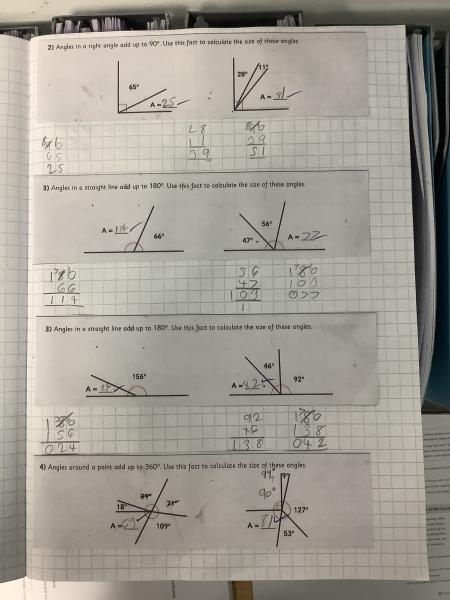 2) Angles in a right angle add up to 90°. Use this fact to calculate the size of these angles.
65°
A = 25
28° 11°
A = 51
65
25
28
11
39
39
51
3) Angles in a straight line add up to 180°. Use this fact to calculate the size of these angles.
A = 114
66°
56°
47°
A = 77
180
66
114
56
47
103
1
180
103
077
3) Angles in a straight line add up to 180°. Use this fact to calculate the size of these angles.
156°
A = 24
46°
92°
A = 42
180
156
024
92
46
138
180
138
042
4) Angles around a point add up to 360°. Use this fact to calculate the size of these angles
99°
18°
71°
A = 63
109°
99°
90°
9°
127°
A = 81
53°